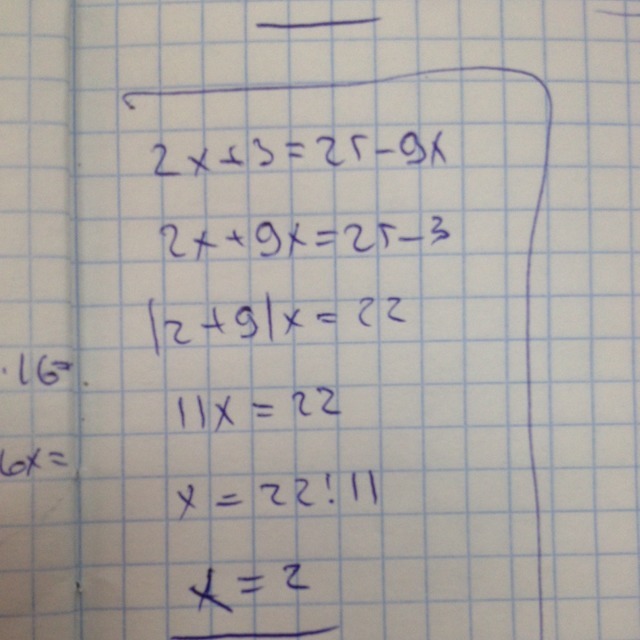 2x+3=25-9x
2x+9x=25-3
(2+9)x=22
·16=
11x=22
6x=
x=22:11
x=2